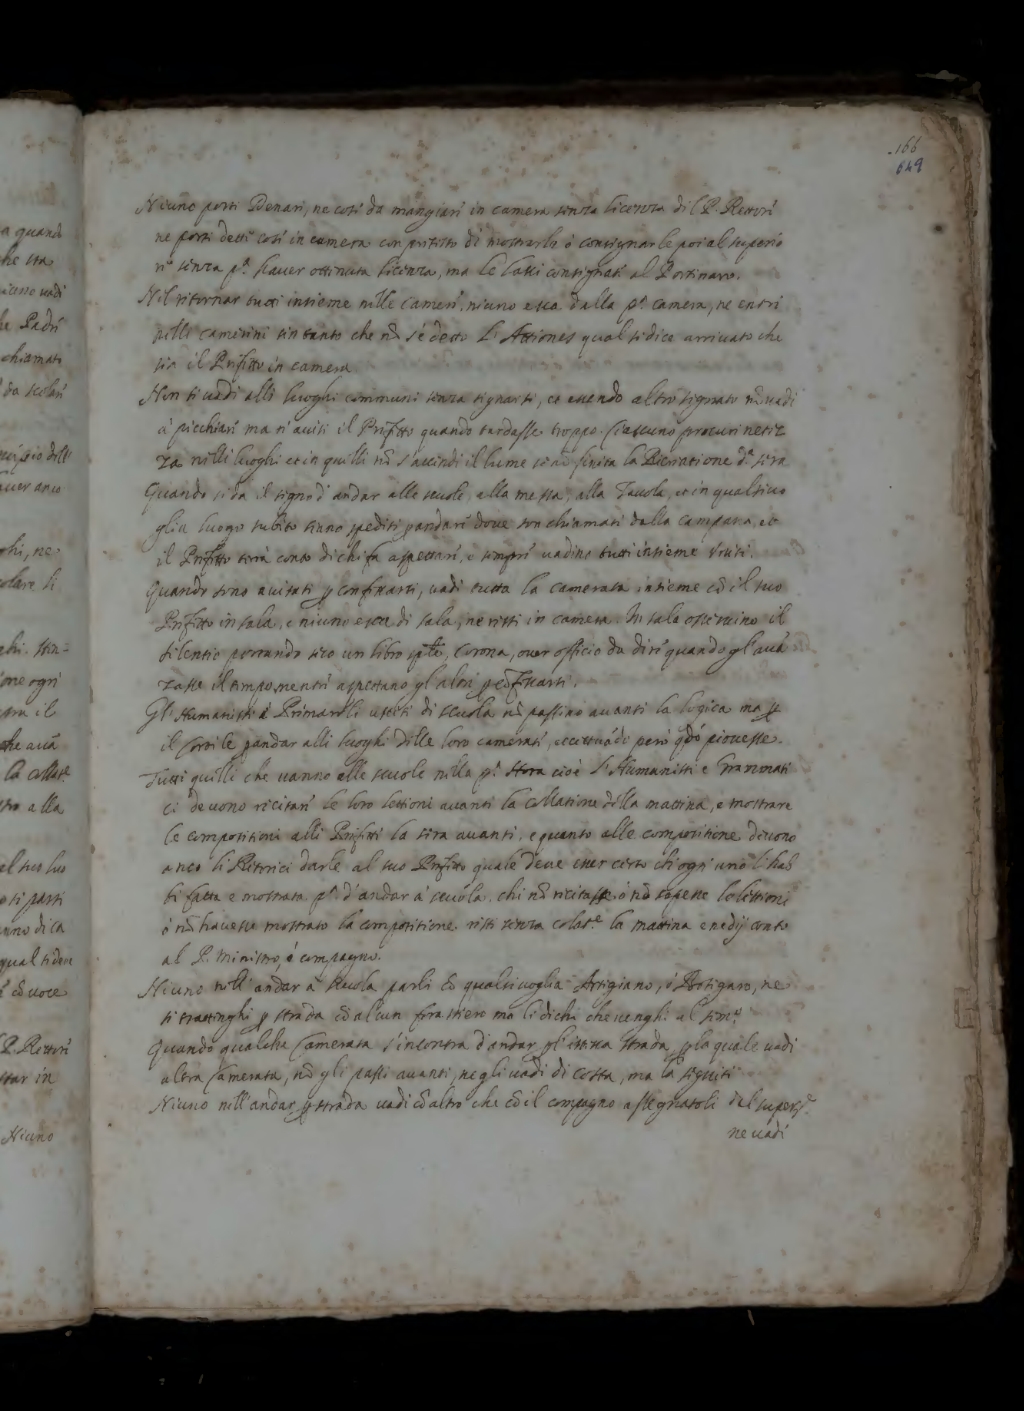 166
649
Niuno porti Denari, ne cose da mangiare in camera senza licenza del P. Rettore
ne porti dette cose in camera con pretesto di mostrarle ò consignarle poi al superio
re senza pª. haver ottenuta licenza, ma le lassi consignate al Portinaro.
Nel ritornar tutti insieme nelle Camere, niuno esca dalla pª. camera, ne entri
nelli camerini sin tanto che nõ s'é detto L' Actiones qual si dica arrivato che
sia il Prefetto in camera
Non si vadi alli luoghi communi senza signarsi, et essendo altro signato nõ vadi
à picchiare ma n'avisi il Prefetto quando tardasse troppo. Ciascuno procuri nettez
za nelli luoghi et in quelli nõ s'accendi il lume se nõ finita la Ricreatione dª. sera
Quando si da il segno d' andar alle scuole, alla messa, alla Tavola, et in qualsivo
glia luogo subito siano spediti p andare dove son chiamati dalla campana, et
il Prefetto terrà conto di chi fa aspettare, e sempre vadino tutti insieme Vniti.
Quando sono avisati p confessarsi, vadi tutta la camerata insieme cõ il suo
Prefetto in sala, e niuno esca di sala, ne resti in camera. In sala osservino il
silentio portando seco un libro spłe, Corona, over officio da dire quando gl'avã
zasse il tempo mentre aspettano gl'altri p cõfessarsi.
Gl'Humanisti è Primaroli usciti di scuola nõ passino avanti la logica ma p
il Cortile p andar alli luoghi delle loro camerate, eccettuãdo però qdo piovesse.
Tutti quelli che vanno alle scuole nella pª. Hora cioè l'Humanisti e Grammati
ci devono recitare le loro lettioni avanti la collatione della mattina, e mostrare
le compositioni alli Prefetti la sera avanti, e quanto alle compositione devono
anco li Retorici darle al suo Prefetto quale deve esser certo che ogn' uno l'hab
bi fatta e mostrata pª. d'andar à scuola. chi nõ recitasse ò nõ sapesse le lettioni
ò nõ havesse mostrato la compositione resti senza colat.e la mattina e ne dij conto
al P. Ministro, ò compagno.
Niuno nell' andar à scuola parli cõ qualsivoglia Artigiano, ò Bottigaro, ne
si trattenghi p strada cõ alcun forastiero ma li dichi che venghi al Semº.
Quando qualche Camerata s'incontra d'andar p l'istessa strada, p la quale vadi
altra Camerata, nõ gli passi avanti, ne gli vadi di costa, ma la seguiti
Niuno nell'andar p strada vadi cõ altro che cõ il compagno assegnatoli dal superre.
ne vadi